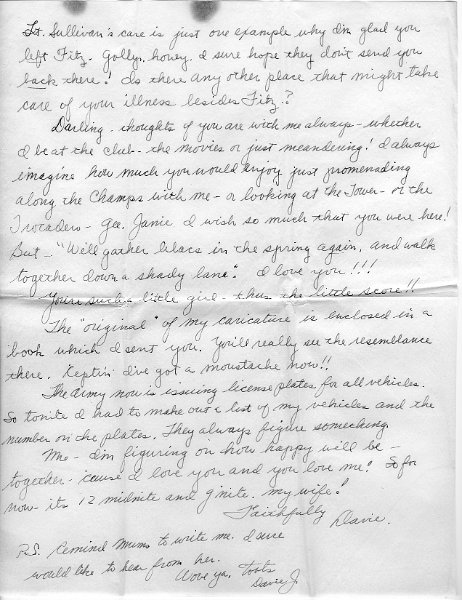 Lt. Sullivan's case is just one example why I'm glad you
left Fitz. Golly, honey, I sure hope they don't send you
back there! Is there any other place that might take
care of your illness besides Fitz.?
Darling - thoughts of you are with me always - whether
I be at the club - the movies or just meandering! I always
imagine how much you would enjoy just promenading
along the Champs with me - or looking at the Tower - or the
Trocadero - Gee, Janie I wish so much that you were here!
But - "We'll gather lilacs in the spring again, and walk
together down a shady lane". I love you!!!
You're such a little girl - thus the little score!!
The "original" of my caricature is enclosed in a
book which I sent you. You'll really see the resemblance
there. Ceptin' I've got a moustache now!!
The Army now is issuing license plates for all vehicles.
So tonite I had to make out a list of my vehicles and the
number on the plates. They always figure something.
Me - I'm figuring on how happy we'll be -
together - 'cause I love you and you love me! So for
now - its 12 midnite and g'nite - my wife!
Faithfully
Davie.
P.S. Remind Mums to write me. I sure
would like to hear from her.
Love ya, toots
Davie J.